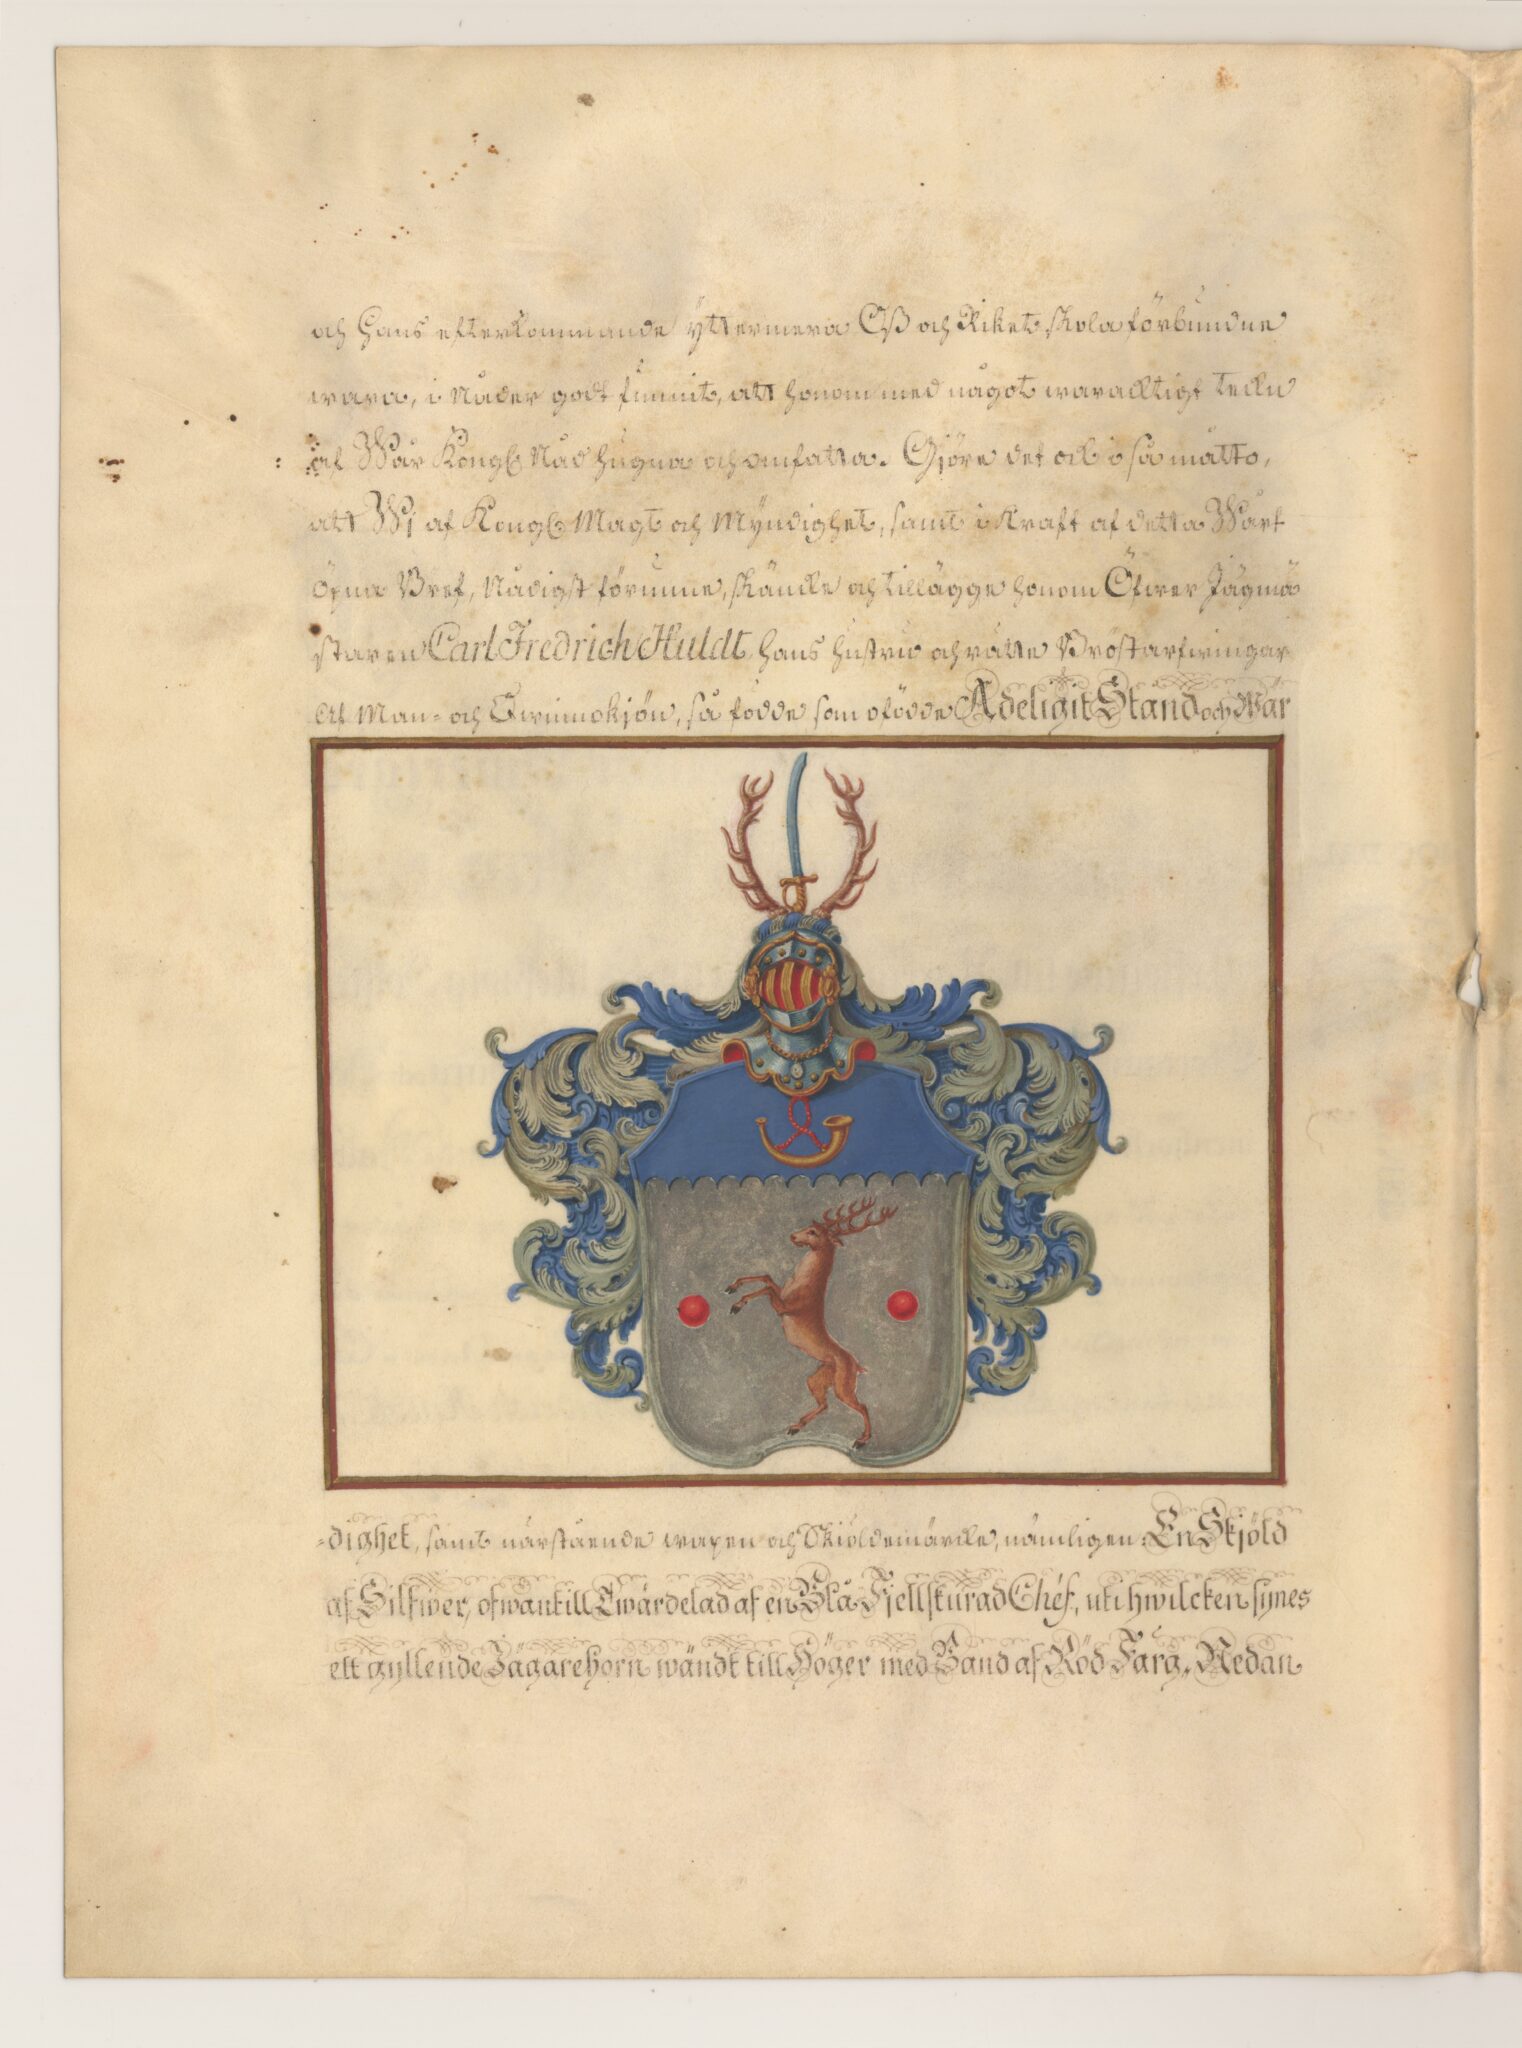 och Hans efterkommande ÿttermera Oß och Riket skola förbundne
wara, i Nåder godt funnit, att honom med något waracktigt teckn
af Wår Kongl. Nåd hugna och omfatta. Gjöre det ock i så matto,
att Wj af Kongl. Magt och Myndighet, samt i Kraft af detta Wårt
Öpna Bref, Nådigst förunne, skäncke och tillägge honom Öfwer Jägmä
staren Carl Fredrich Huldt, Hans Hustru och rätte Bröstarfwingar
af Man- och Qwinnokjön, så födde som ofödde Adeligit Stånd och Wär
=dighet, samt närstående wapen och Skiöldemärcke, nämligen: En Skjöld
af Silfwer, ofwantill Twärdelad af en Blå Fjellskurad Chéf, uti hwilcken synes
ett gyllende Jägarehorn wändt till Höger med Band af Röd Färg, Nedan